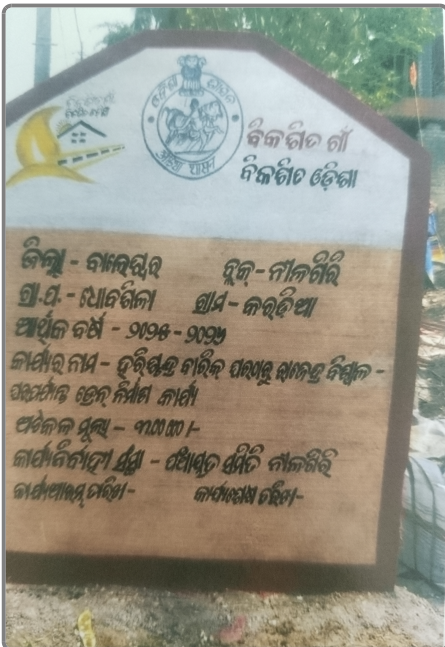 ବିକଶିତ ଗାଁ
ବିକଶିତ ଓଡ଼ିଶା
ଜିଲ୍ଲା - ବାଲେଶ୍ୱର ବ୍ଲକ୍ - ନୀଳଗିରି
ଗ୍ରା.ପ. - ଧୋବଶିଳା ଗ୍ରାମ - କରଡ଼ିଆ
ଆର୍ଥିକ ବର୍ଷ - ୨୦୨୫ - ୨୦୨୬
କାର୍ଯ୍ୟର ନାମ - ହରିଶ୍ଚନ୍ଦ୍ର ବାରିକ୍ ଘରଠାରୁ ରାଜେନ୍ଦ୍ର ବିଶ୍ୱାଳ -
ଘରପର୍ଯ୍ୟନ୍ତ ଡ୍ରେନ୍ ନିର୍ମାଣ କାର୍ଯ୍ୟ
ଅଟକଳ ମୂଲ୍ୟ - ୩,00,000 /-
କାର୍ଯ୍ୟନିର୍ବାହୀ ସଂସ୍ଥା - ପଞ୍ଚାୟତ ସମିତି ନୀଳଗିରି
କାର୍ଯ୍ୟଆରମ୍ଭ ତାରିଖ - କାର୍ଯ୍ୟଶେଷ ତାରିଖ -